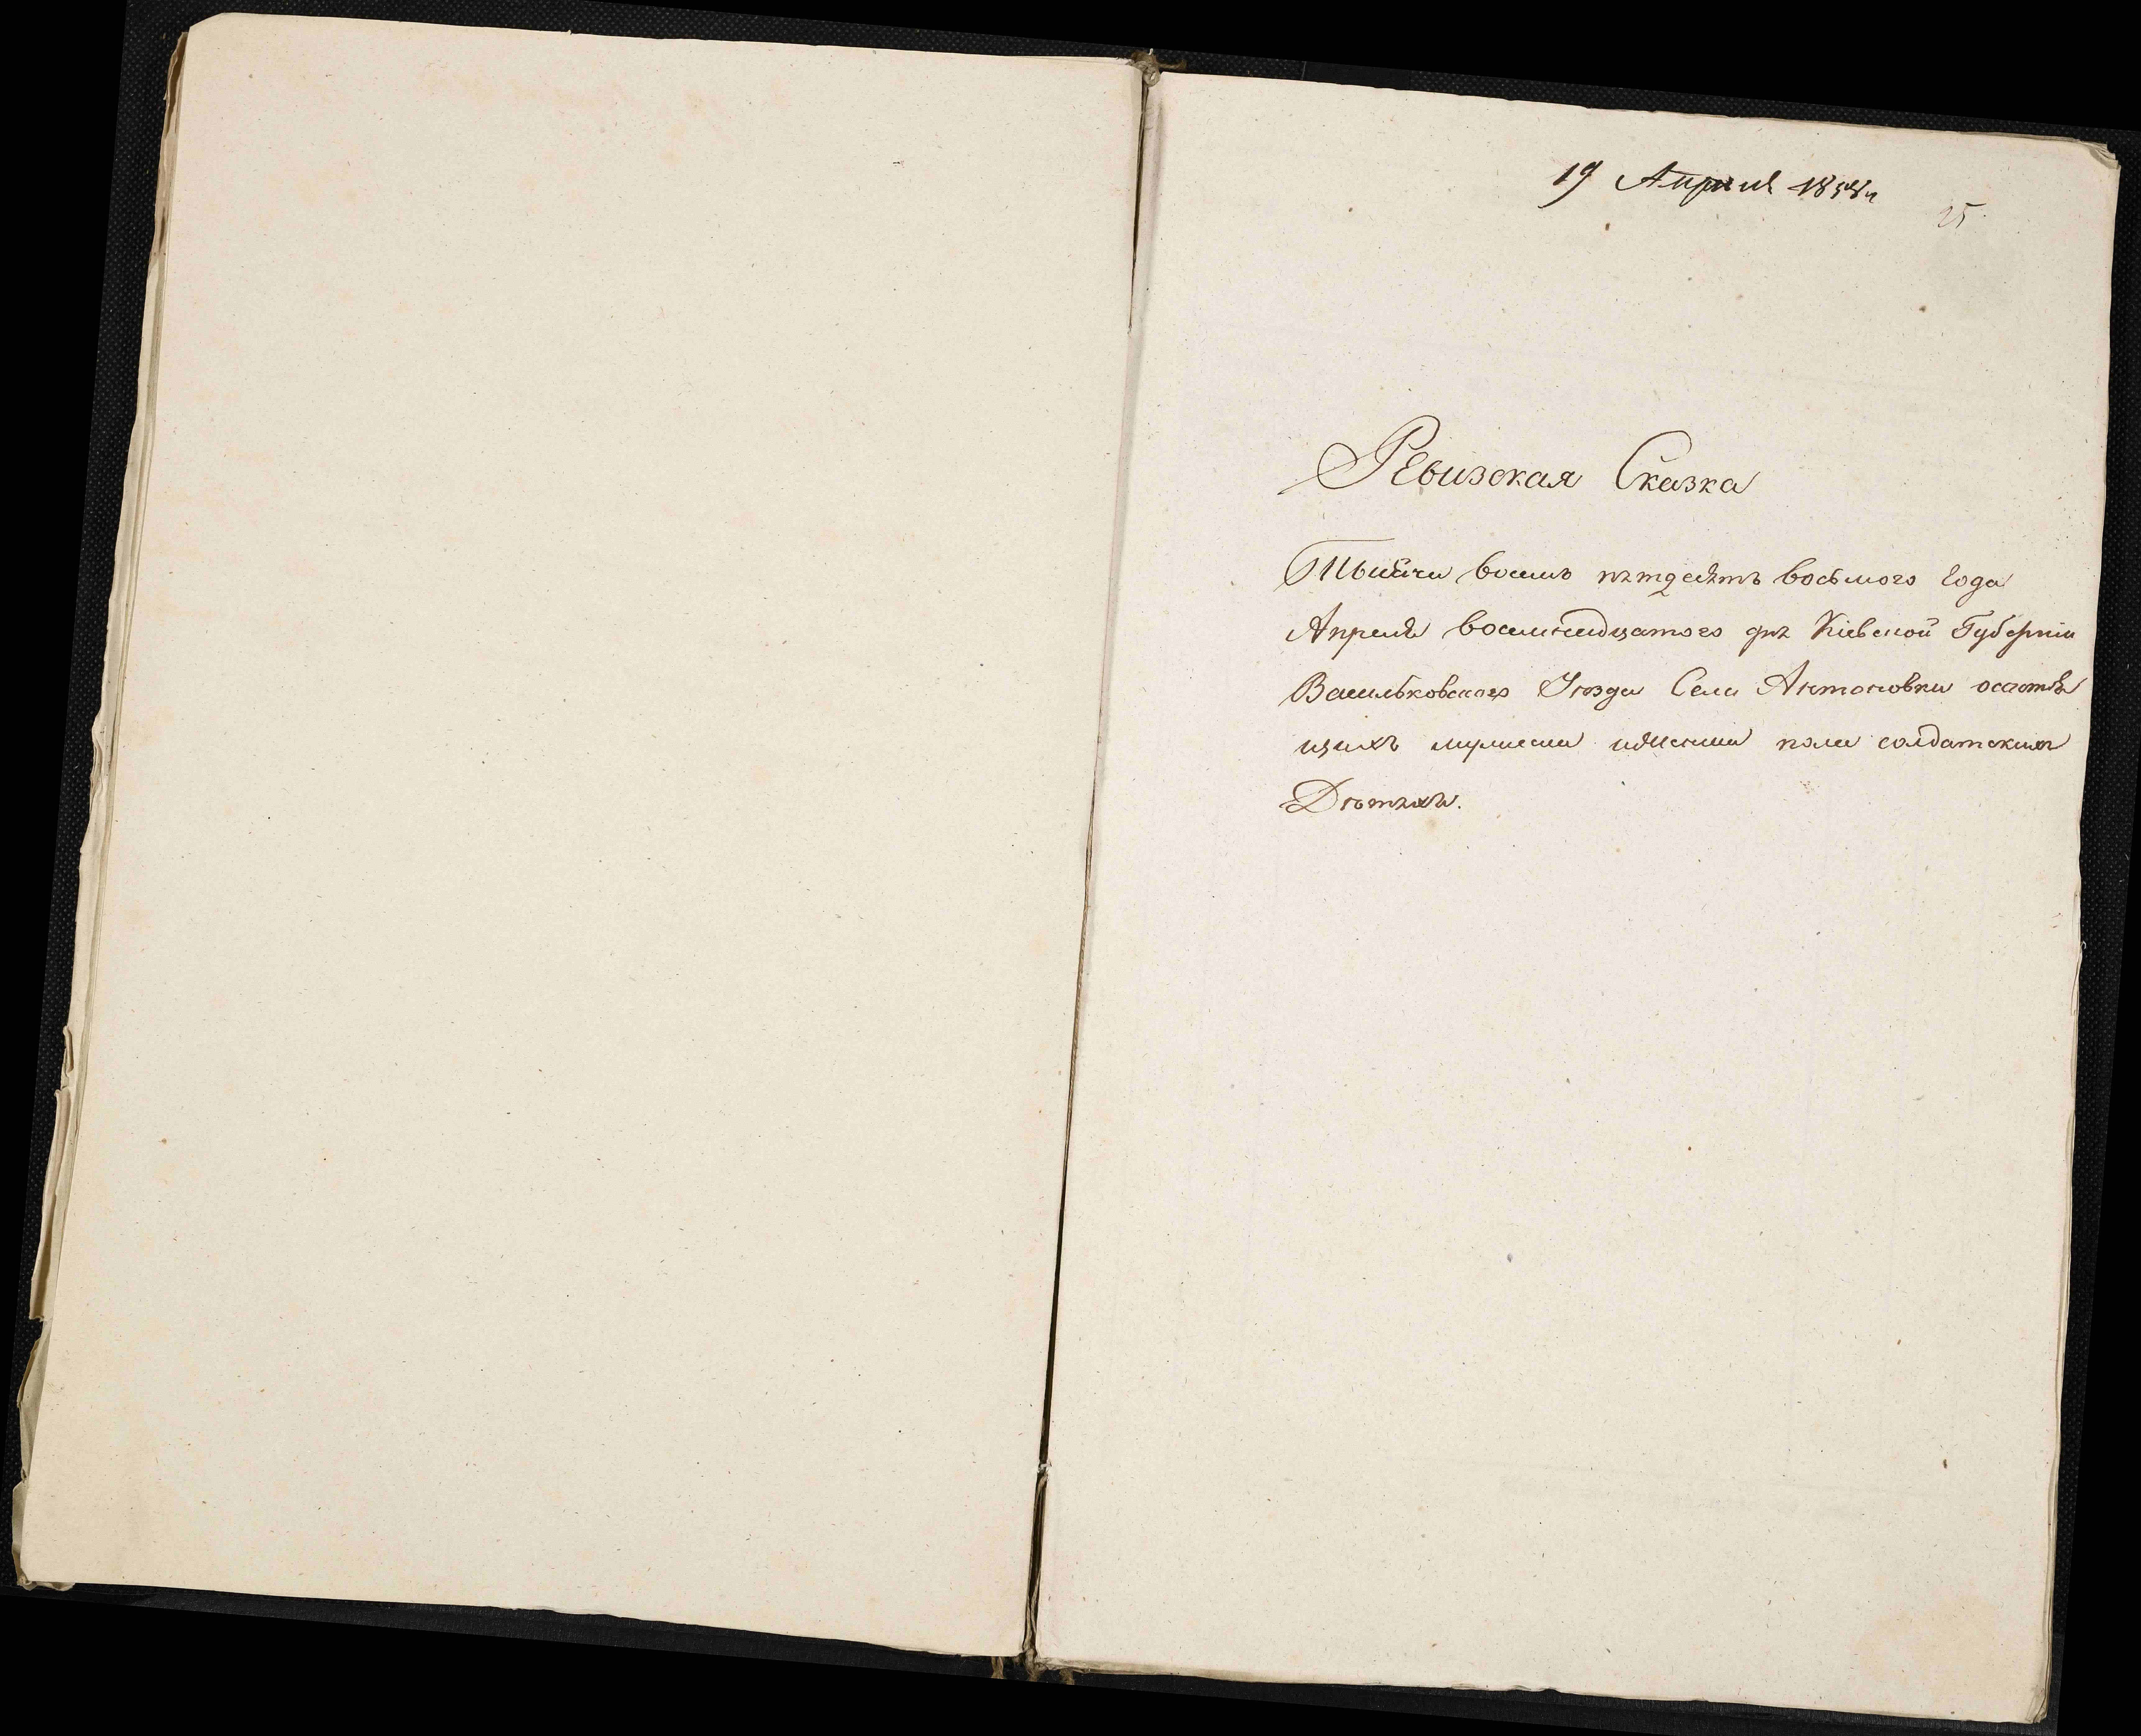 19 Апреля 1858 г
25
Ревизская Сказка
Тысячи восемь пятдесятъ восьмого года
Апреля восемнадцатого дня Кіевской Губерніи
Васильковского Уѣзда Села Антоновки о состоя
щихъ мужеска и женска пола солдатскихъ
Дѣтяхъ.